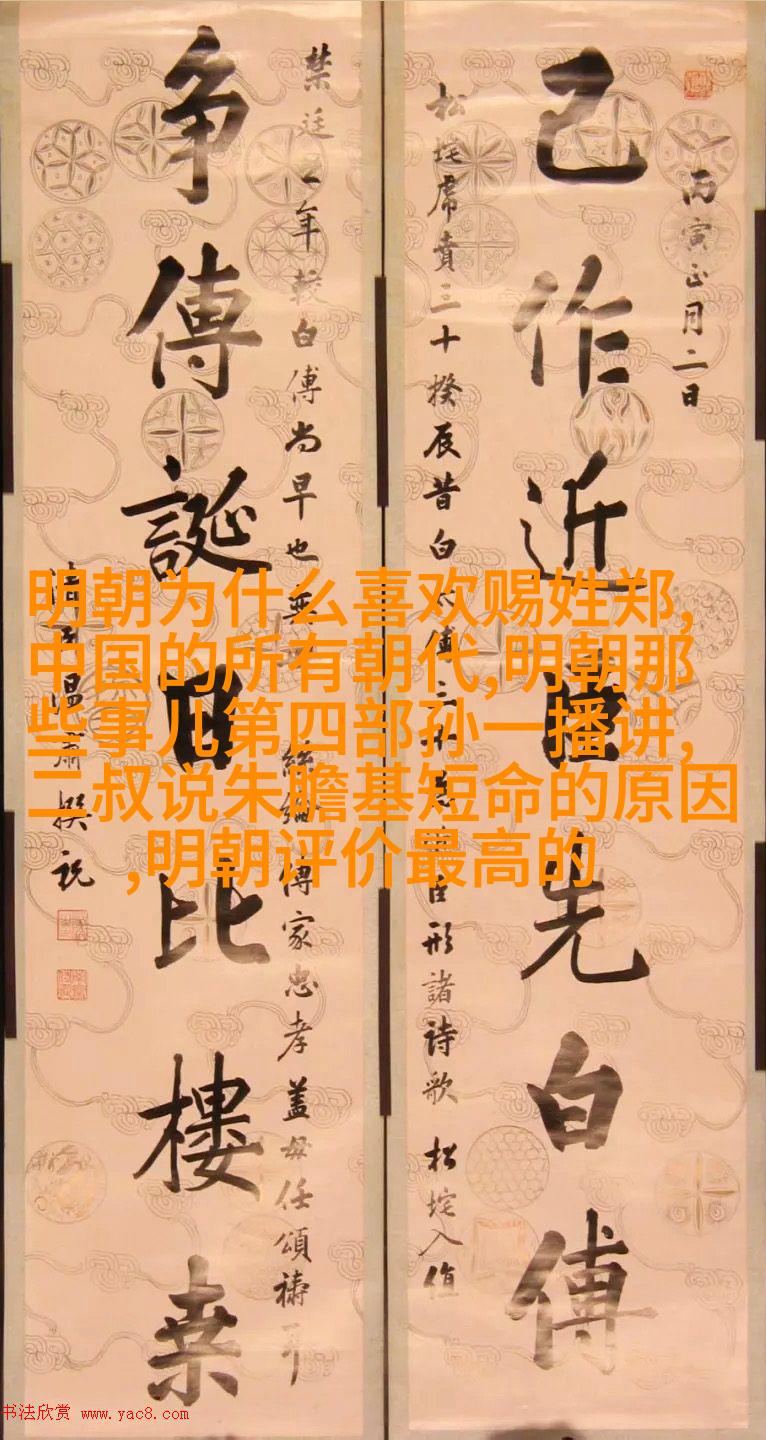 丙寅正月二日
己作近先白傅
松垞席賁三十揆辰昔白傅三十臣形諸詩歌 松垞入值
禁廷年較白傅尚早也無絲綸傳家忠孝蓋毋任頌禱耳
争傳誕日比樓桒
温肅撰祝
明朝为什么喜欢赐姓郑,
中国的所有朝代,明朝那
些事儿第四部孙一播讲,
二叔说朱瞻基短命的原因
,明朝评价最高的
书法欣赏 www.yac8.com